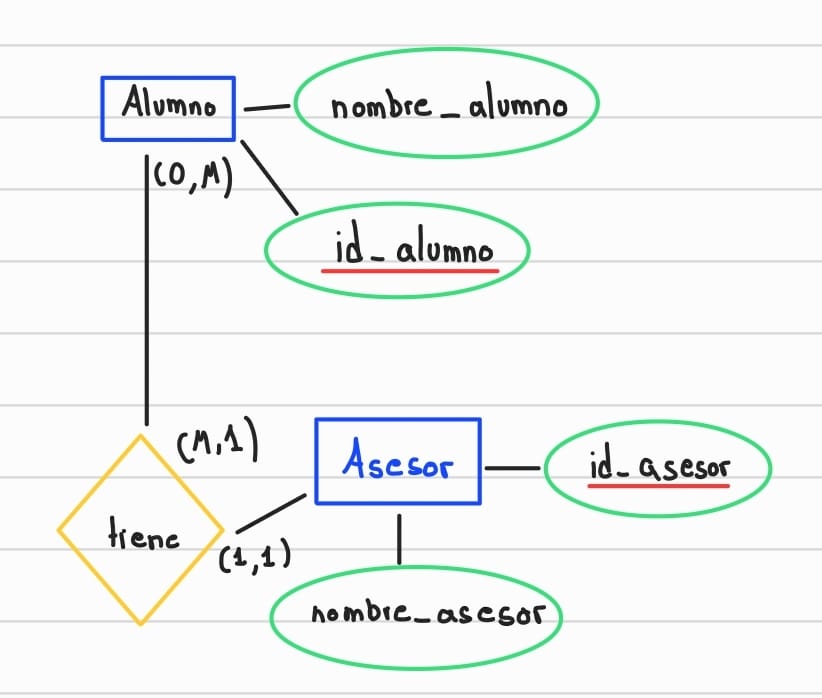 Alumno
nombre_alumno
(0,M)
id_alumno
(M,1)
Asesor
id_asesor
tiene
(1,1)
nombre_asesor